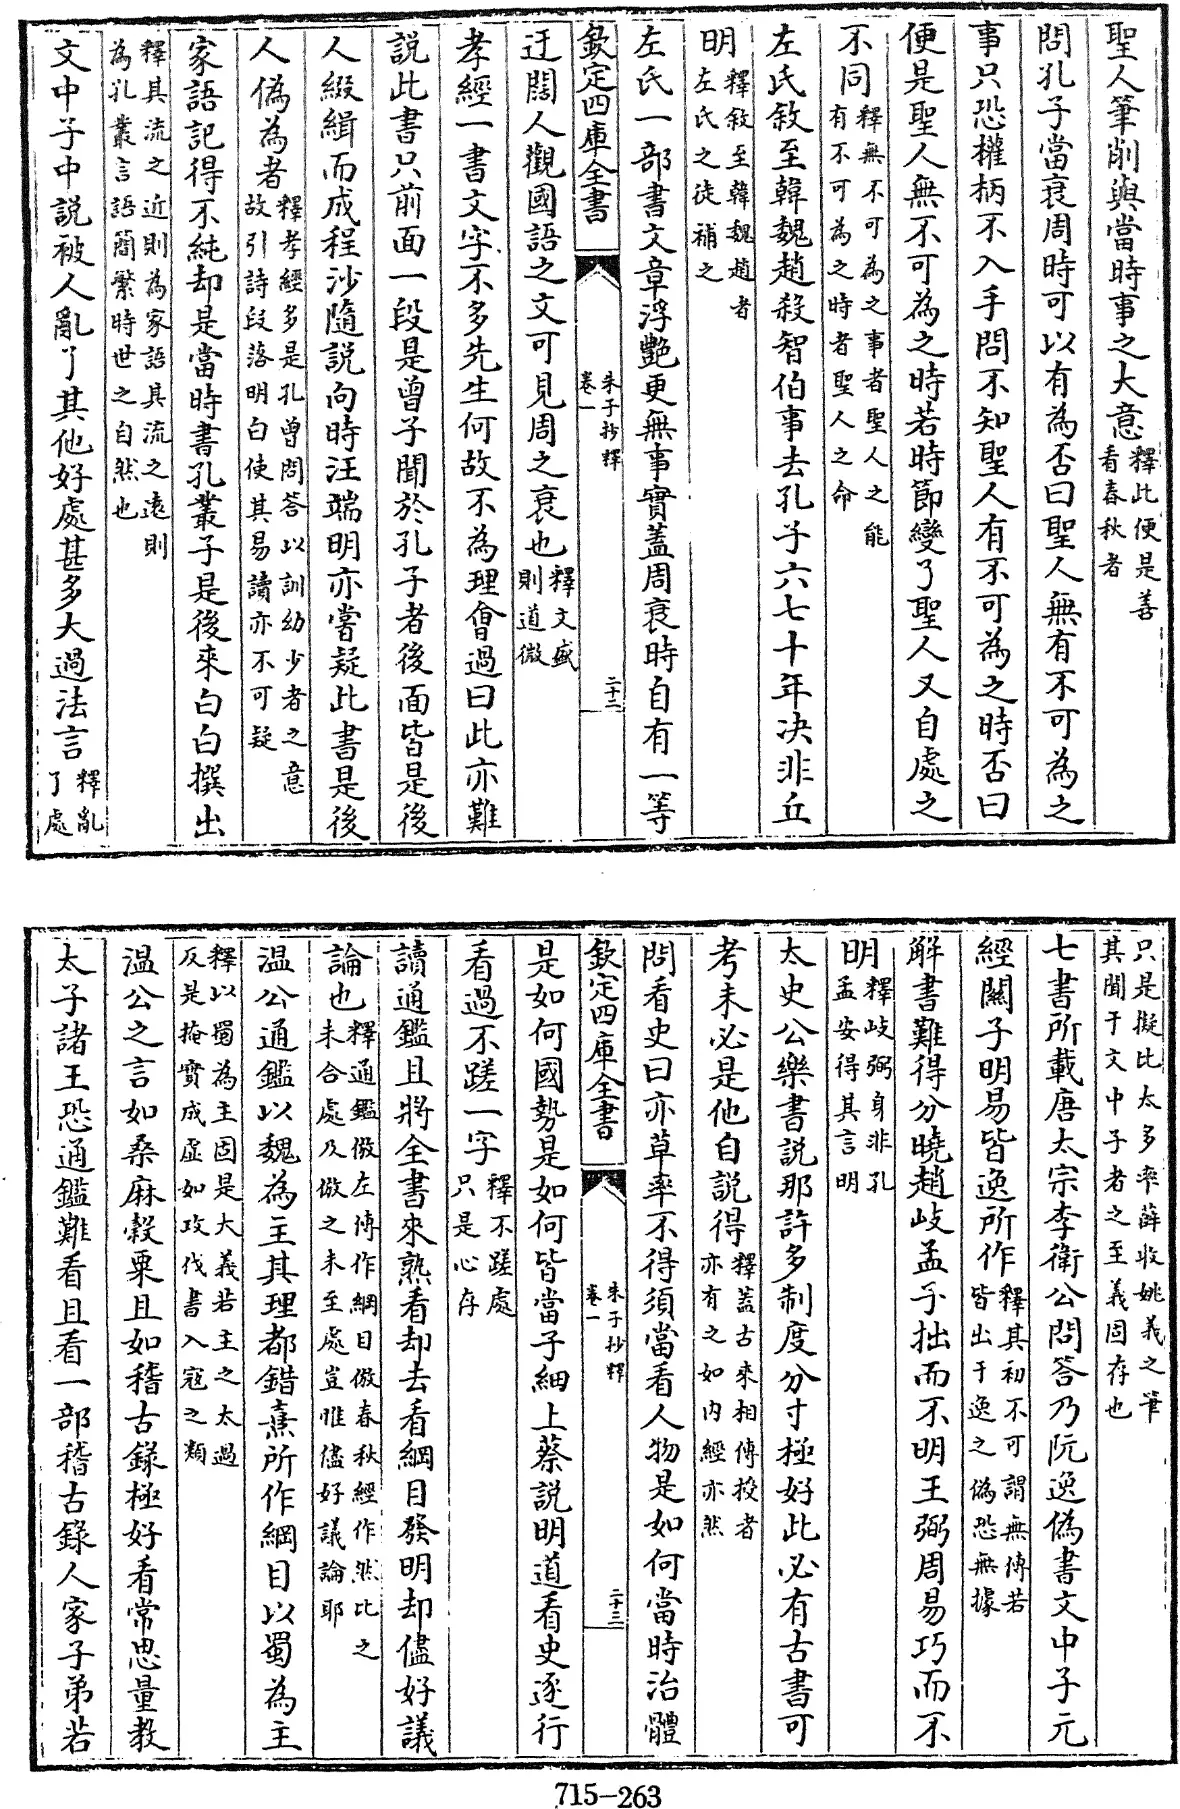 聖人筆削與當時事之大意釋此便是善
看春秋者
問孔子當衰周時可以有為否曰聖人無有不可為之
事只恐權柄不入手問不知聖人有不可為之時否曰
便是聖人無不可為之時若時節變了聖人又自處之
不同釋無不可為之事者聖人之能
有不可為之時者聖人之命
左氏敘至韓魏趙殺智伯事去孔子六七十年決非丘
明釋敘至韓魏趙者
左氏之徒補之
左氏一部書文章浮艷更無事實蓋周衰時自有一等
欽定四庫全書
朱子抄釋
卷一
二十二
迂闊人觀國語之文可見周之衰也釋文盛
則道微
孝經一書文字不多先生何故不為理會過曰此亦難
說此書只前面一段是曾子聞於孔子者後面皆是後
人綴緝而成程沙隨說向時汪端明亦嘗疑此書是後
人偽為者釋孝經多是孔曾問答以訓幼少者之意
故引詩段落明白使其易讀亦不可疑
家語記得不純却是當時書孔叢子是後來白白撰出
釋其流之近則為家語其流之遠則
為孔叢言語簡繁時世之自然也
文中子中說被人亂了其他好處甚多大過法言釋亂
了處
只是擬比太多率薛收姚義之筆
其聞于文中子者之至義固存也
七書所載唐太宗李衛公問答乃阮逸偽書文中子元
經關子明易皆逸所作釋其初不可謂無傳若
皆出于逸之偽恐無據
解書難得分曉趙岐孟子拙而不明王弼周易巧而不
明釋岐弼身非孔
孟安得其言明
太史公樂書說那許多制度分寸極好此必有古書可
考未必是他自說得釋蓋古來相傳授者
亦有之如內經亦然
問看史曰亦草率不得須當看人物是如何當時治體
欽定四庫全書
朱子抄釋
卷一
二十三
是如何國勢是如何皆當子細上蔡說明道看史逐行
看過不蹉一字釋不蹉處
只是心存
讀通鑑且將全書來熟看却去看綱目發明却儘好議
論也釋通鑑倣左傳作綱目倣春秋經作然比之
未合處及倣之未至處豈惟儘好議論耶
溫公通鑑以魏為主其理都錯熹所作綱目以蜀為主
釋以蜀為主固是大義若主之太過
反是掩實成虛如攻伐書入寇之類
溫公之言如桑麻穀粟且如稽古錄極好看常思量教
太子諸王恐通鑑難看且看一部稽古錄人家子弟若
715-263